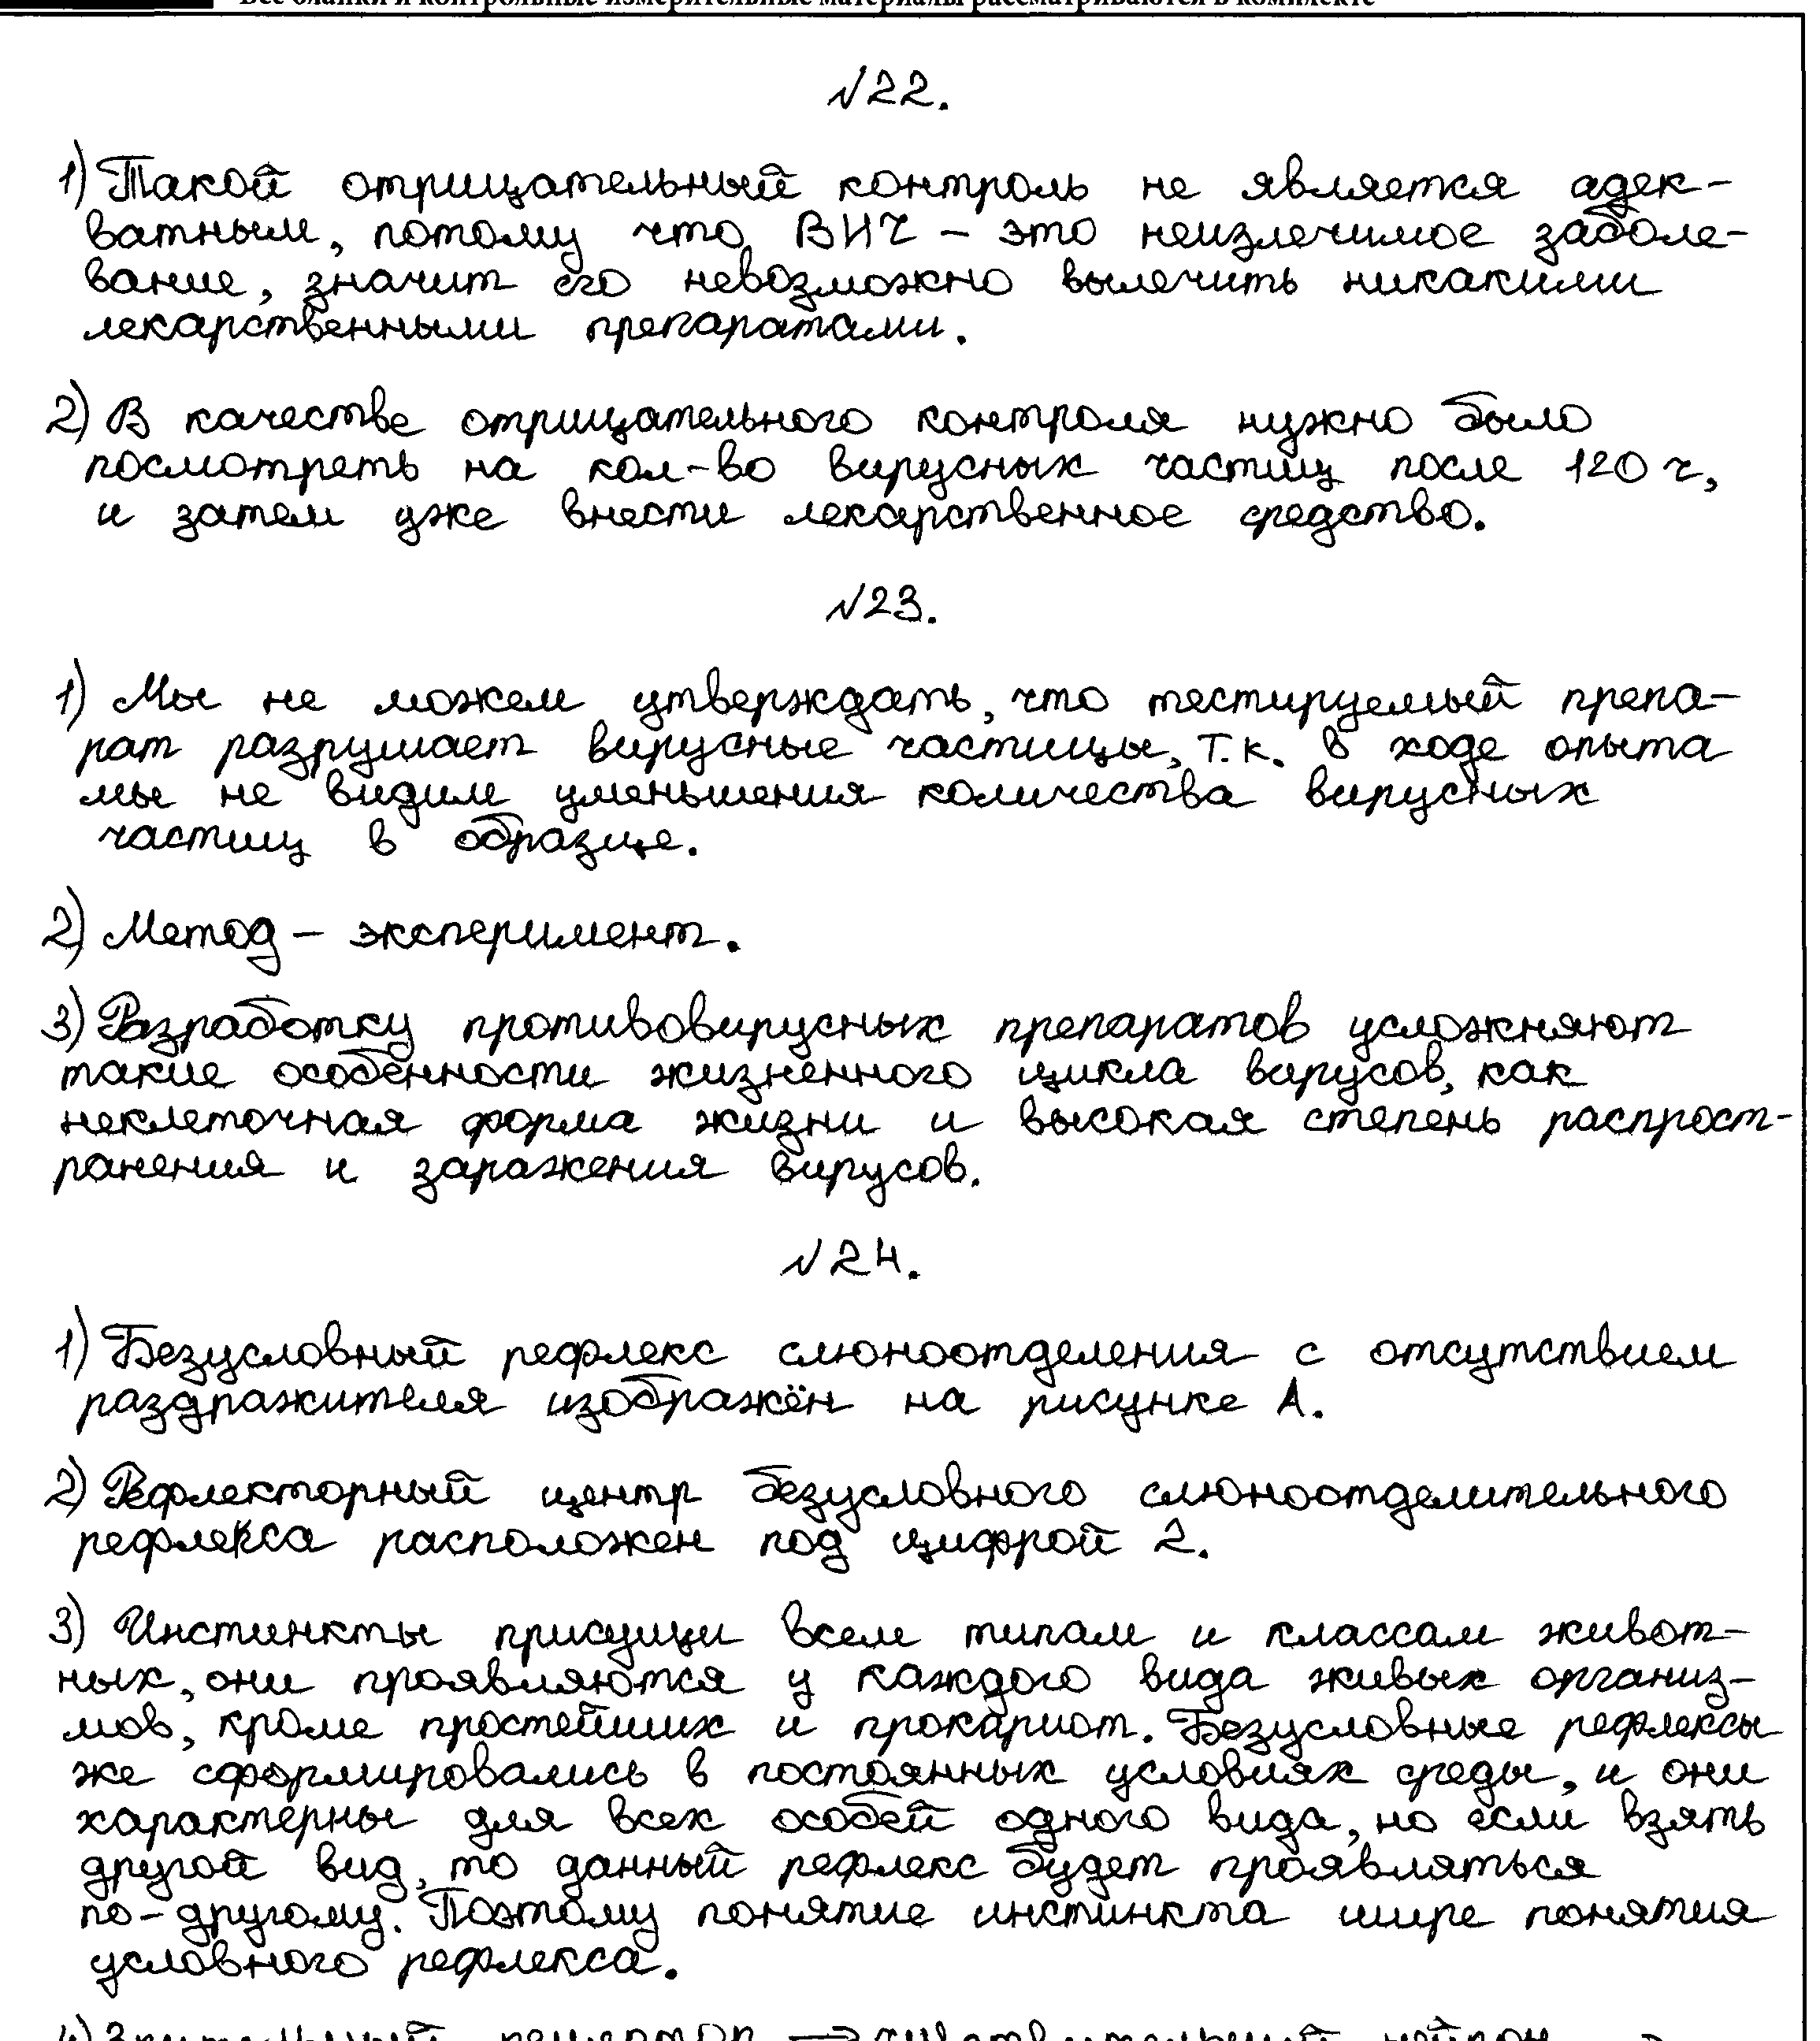 Все бланки и контрольные измерительные материалы рассматриваются в комплекте
№22.
1) Такой отрицательный контроль не является адек-
ватным, потому что ВИЧ - это неизлечимое заболе-
вание, значит его невозможно вылечить никакими
лекарственными препаратами.
2) В качестве отрицательного контроля нужно было
посмотреть на кол-во вирусных частиц после 120 ч,
и затем уже внести лекарственное средство.
№23.
1) Мы не можем утверждать, что тестируемый препа-
рат разрушает вирусные частицы, т.к. в ходе опыта
мы не видим уменьшения количества вирусных
частиц в образце.
2) Метод - эксперимент.
3) Разработку противовирусных препаратов усложняют
такие особенности жизненного цикла вирусов, как
неклеточная форма жизни и высокая степень распрост-
ранения и заражения вирусов.
№24.
1) Безусловный рефлекс слюноотделения с отсутствием
раздражителя изображён на рисунке А.
2) Рефлекторный центр безусловного слюноотделительного
рефлекса расположен под цифрой 2.
3) Инстинкты присущи всем типам и классам живот-
ных, они проявляются у каждого вида живых организ-
мов, кроме простейших и прокариот. Безусловные рефлексы
же сформировались в постоянных условиях среды, и они
характерны для всех особей одного вида, но если взять
другой вид, то данный рефлекс будет проявляться
по-другому. Поэтому понятие инстинкта шире понятия
условного рефлекса.
4) Зрительный рецептор → чувствительный нейрон